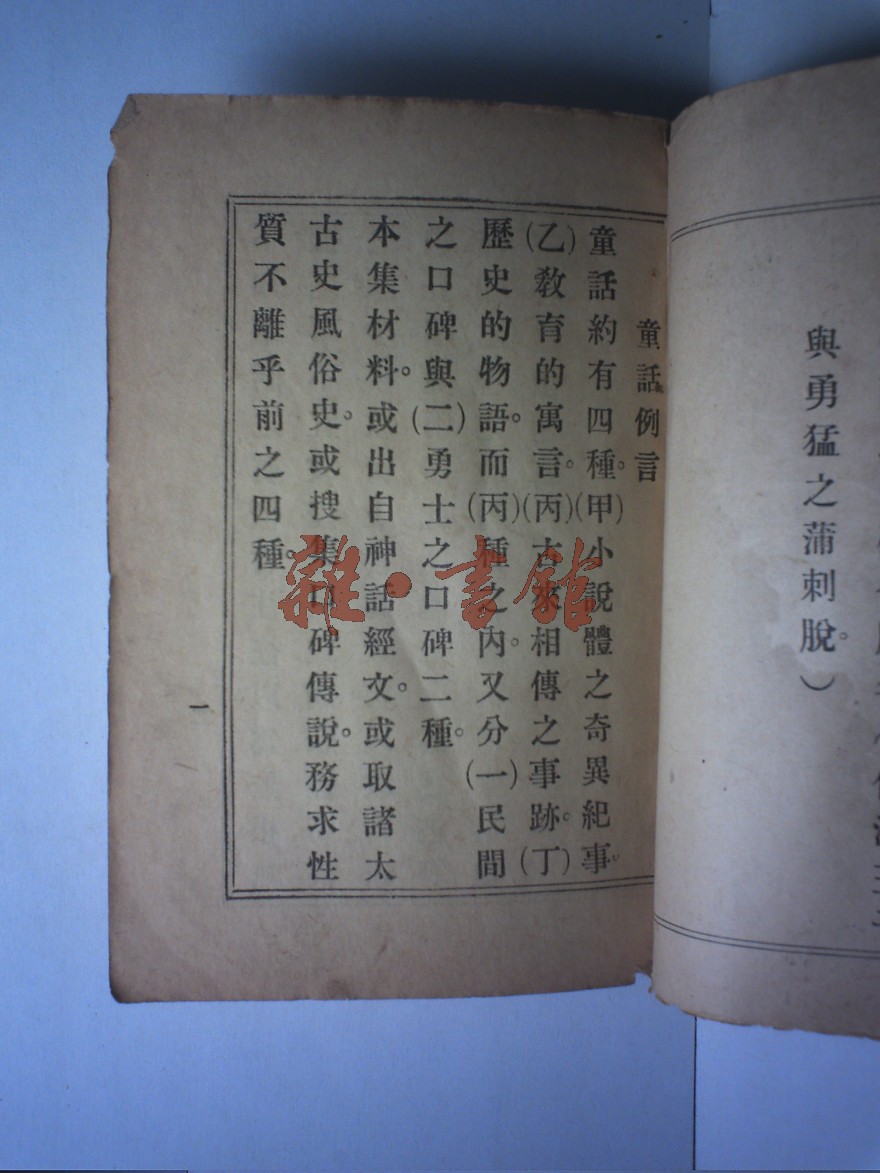 與勇猛之蒲刺脫。）
童話例言
童話約有四種。(甲)小說體之奇異紀事。
(乙)教育的寓言。(丙)古來相傳之事跡。(丁)
歷史的物語。而(丙)種之內。又分(一)民間
之口碑與(二)勇士之口碑二種。
本集材料。或出自神話經文。或取諸太
古史風俗史。或搜集口碑傳說。務求性
質不離乎前之四種。
一
雜·書館